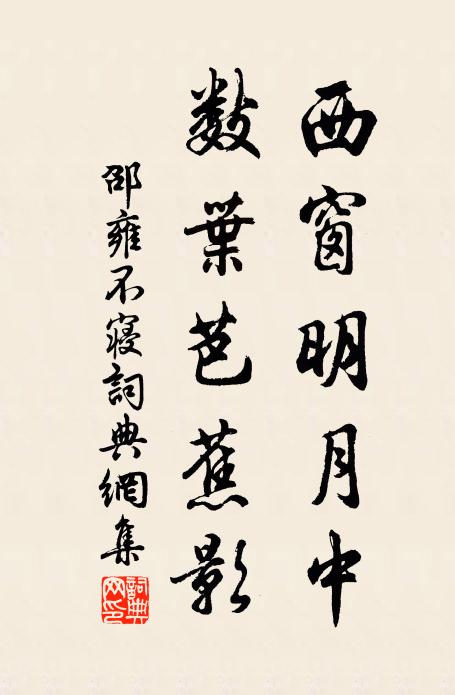 西窗明月中
數葉芭蕉影
邵雍不寢詞典網集
詞典網印